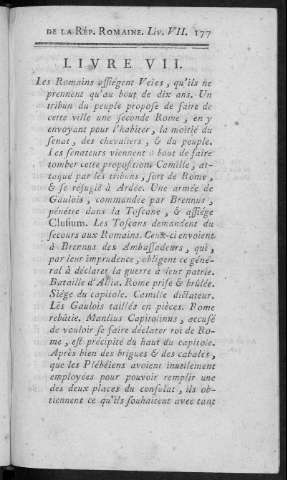 DE LA RÉP. ROMAINE. Liv. VII. 177
LIVRE VII.
Les Romains assiégent Veies, qu'ils ne
prennent qu'au bout de dix ans. Un
tribun du peuple propose de faire de
cette ville une seconde Rome, en y
envoyant pour l'habiter, la moitié du
senat, des chevaliers, & du peuple.
Les senateurs viennent à bout de faire
tomber cette proposition. Camille, at-
taqué par les tribuns, sort de Rome,
& se refugie à Ardée. Une armée de
Gaulois, commandée par Brennus,
pénétre dans la Toscane, & assiége
Clusium. Les Toscans demandent du
secours aux Romains. Ceux-ci envoient
à Brennus des Ambassadeurs, qui,
par leur imprudence, obligent ce géné-
ral à déclarer la guerre à leur patrie.
Bataille d'Allia. Rome prise & brûlée.
Siége du capitole. Camille dictateur.
Les Gaulois taillés en pièces. Rome
rebâtie. Manlius Capitolinus, accusé
de vouloir se faire déclarer roi de Ro-
me, est précipité du haut du capitole.
Après bien des brigues & des cabales,
que les Plébéiens avoient inutilement
employées pour pouvoir remplir une
des deux places du consulat, ils ob-
tiennent ce qu'ils souhaitent avec tant